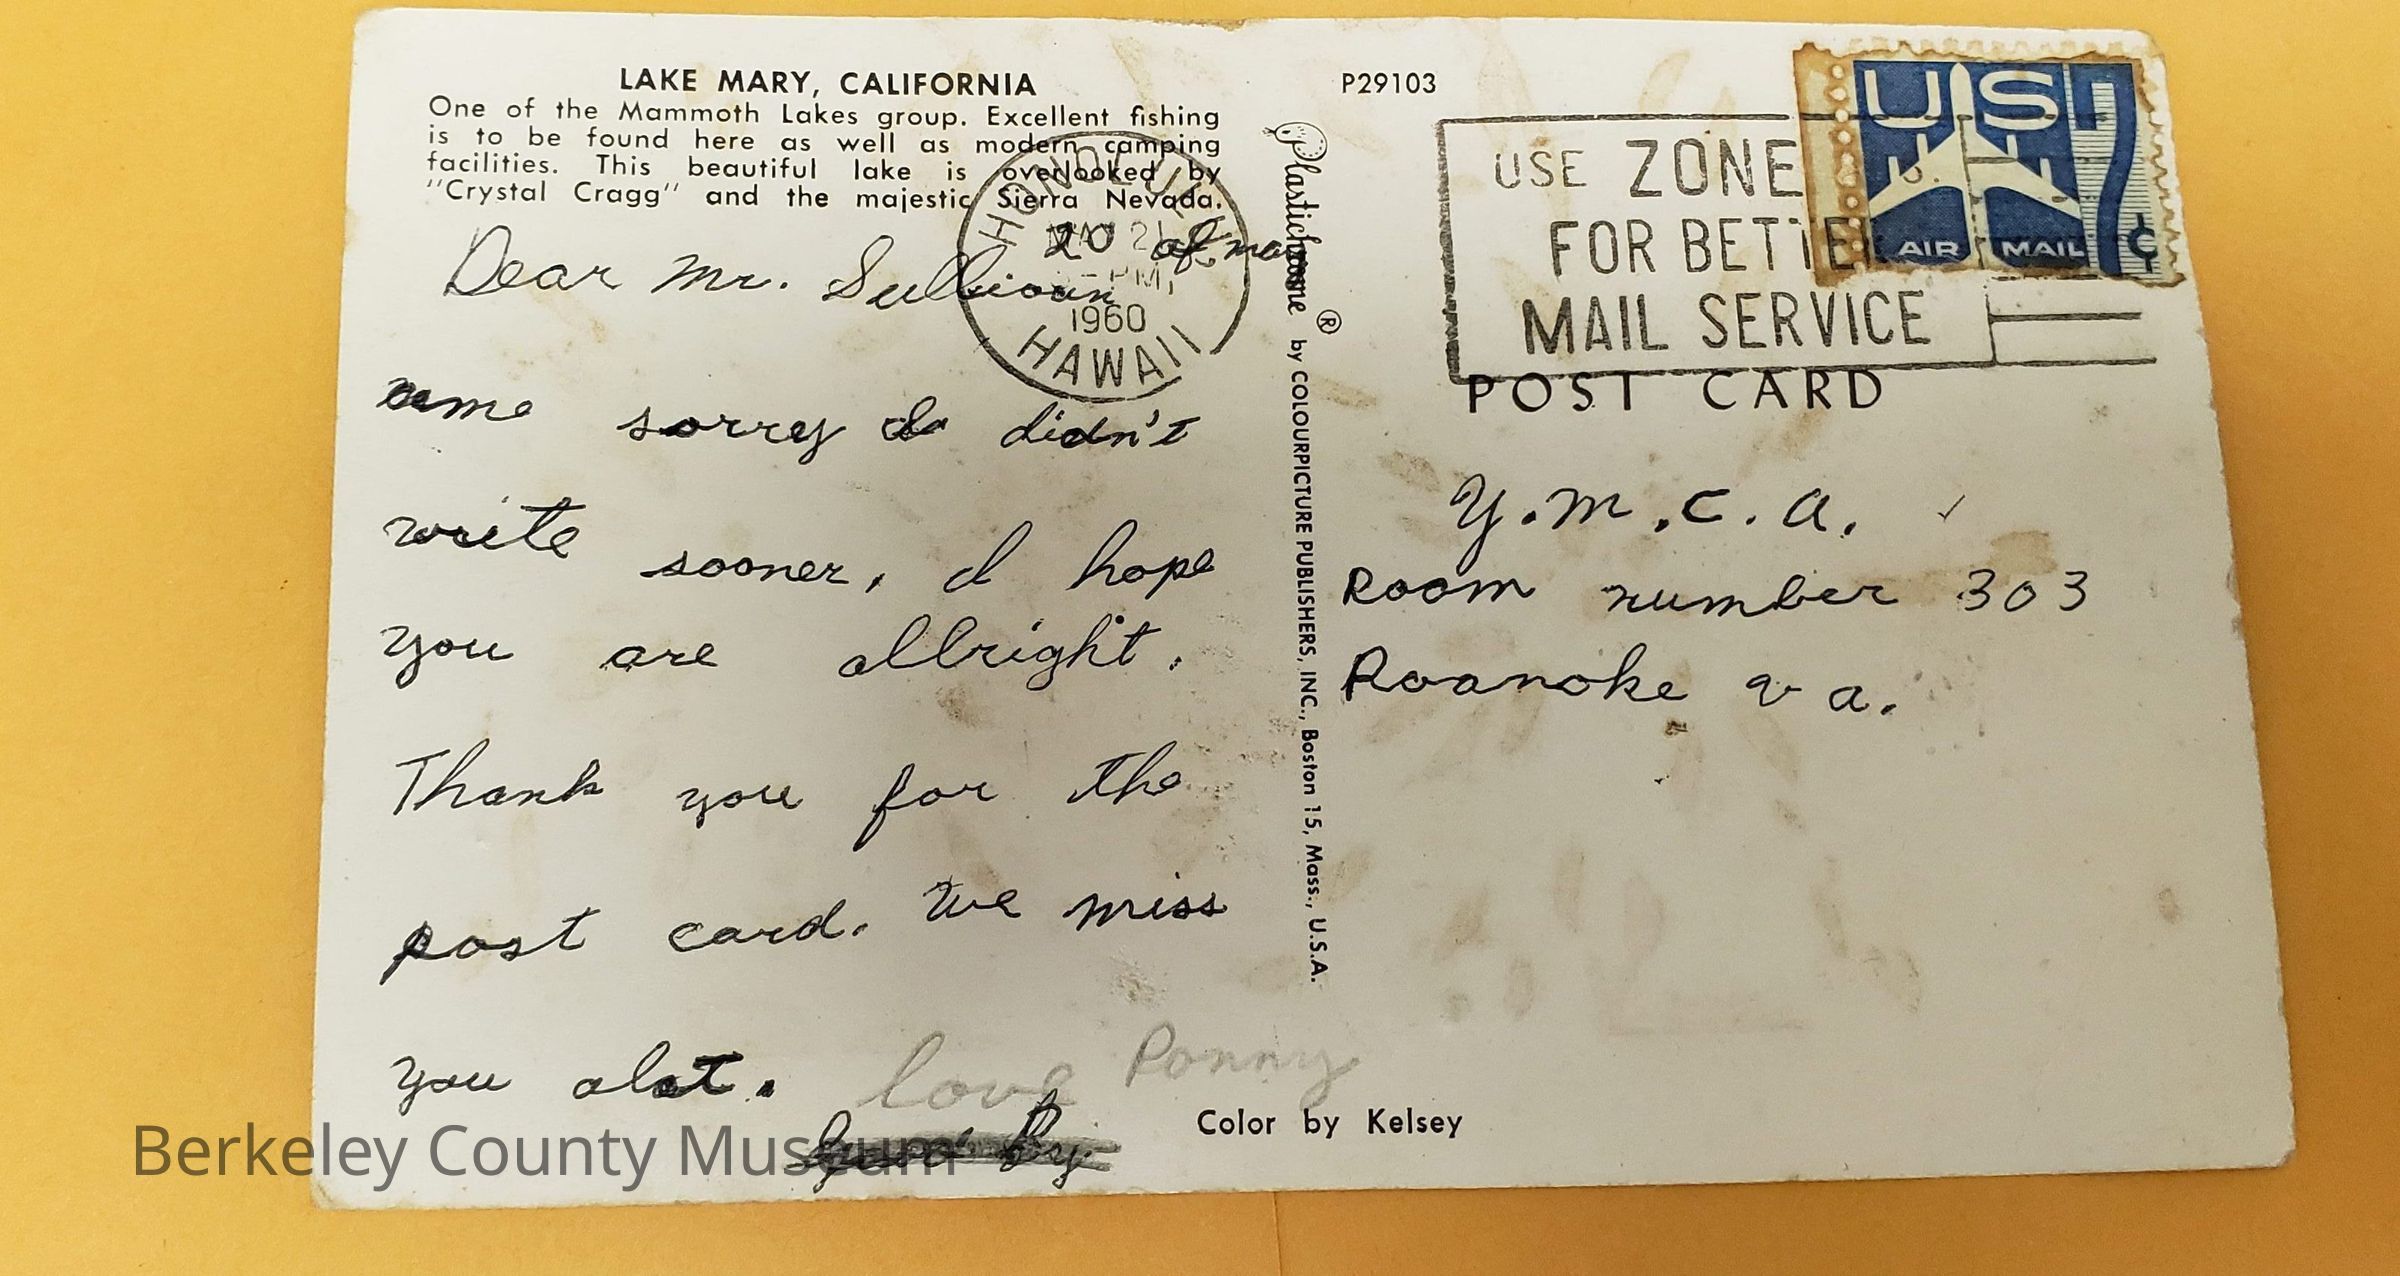 LAKE MARY, CALIFORNIA
One of the Mammoth Lakes group. Excellent fishing
is to be found here as well as modern camping
facilities. This beautiful lake is overlooked by
"Crystal Cragg" and the majestic Sierra Nevada.
20 of
Dear Mr. Sullivan
sorry I didn't
write sooner, I hope
you are allright.
Thank you for the
post card. We miss
you alot. love Ponny
By
HONOLULU
MAY 21
PM
1960
HAWAII
Plastichrome ® by COLOURPICTURE PUBLISHERS, INC., Boston 15, Mass., U.S.A.
P29103
USE ZONE
FOR BETTER
MAIL SERVICE
US 7¢
AIR MAIL
POST CARD
Y.M.C.A.
Room number 303
Roanoke va.
Color by Kelsey
Berkeley County Museum